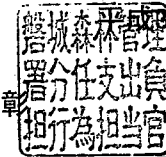 磐城森林管理
署分任支出負
担行為担当官
彰